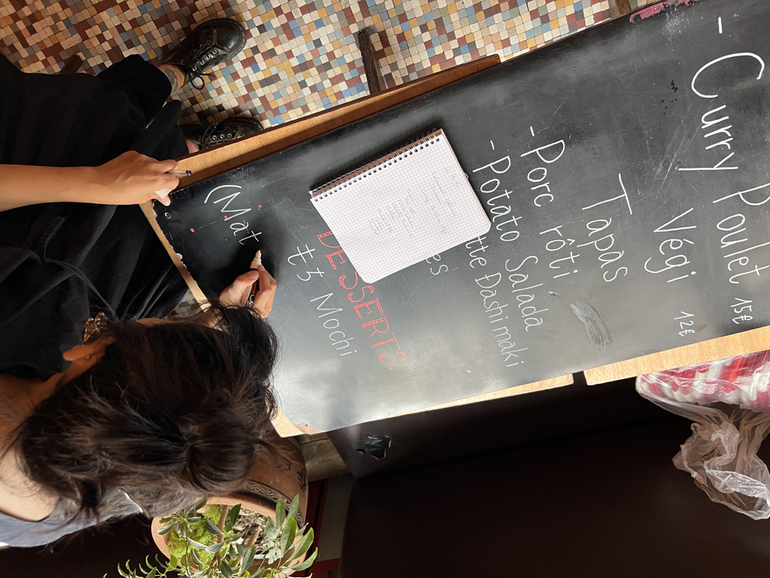 - Curry Poulet 15€
Végi 12€
Tapas
- Porc rôti
- Potato Salada
tte Dashimaki
es
DESSERTS
Mochi
(Mat